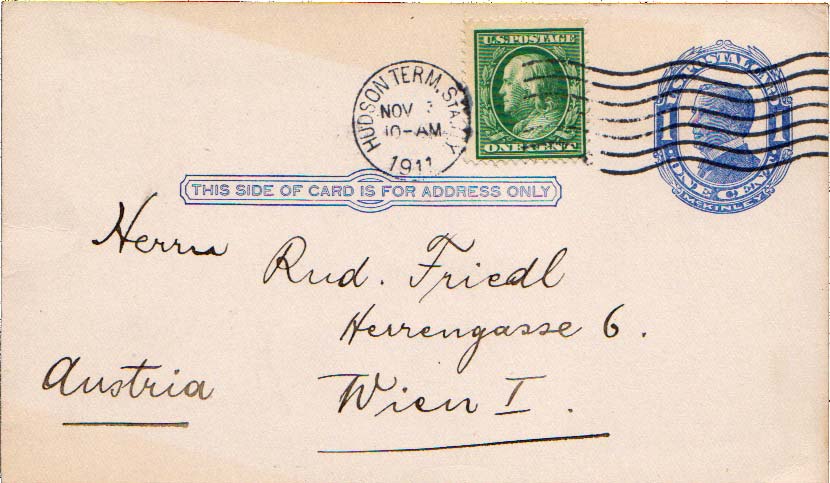 U.S. POSTAGE
ONE CENT
HUDSON TERM. STA. N.Y.
NOV
10-AM
1911
U.S. POSTAL CARD
1 1
ONE CENT
McKINLEY
THIS SIDE OF CARD IS FOR ADDRESS ONLY
Herrn
Rud. Friedl
Herrengasse 6.
Austria
Wien I.